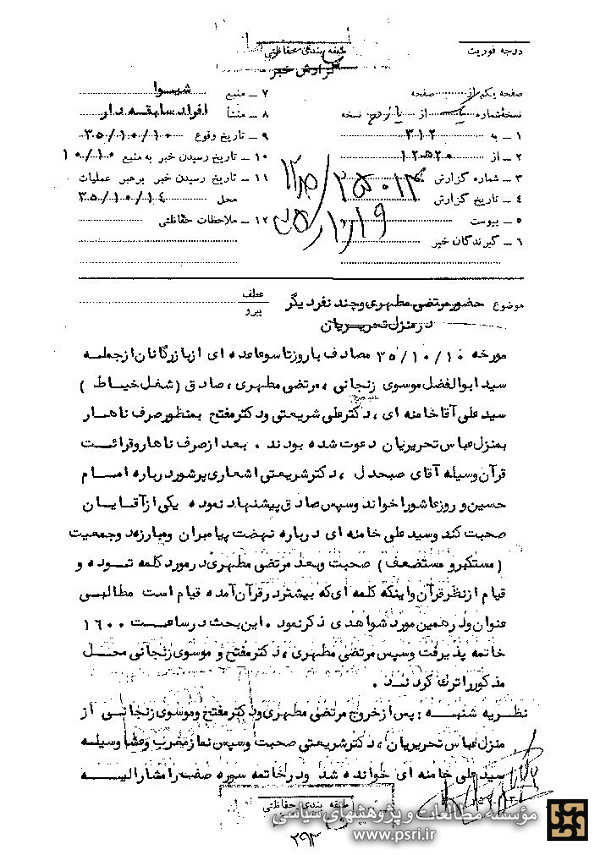 درجه فوریت
طبقه بندی حفاظتی
گزارش خبر
صفحه یکم از صفحه
نسخه شماره یک از یازدهم نسخه
۱ ـ به ۳۱۲
۲ ـ از ۲۰ه۱۲
۳ ـ شماره گزارش
۴ ـ تاریخ گزارش
۵ ـ پیوست
۶ ـ گیرندگان خبر
۷ ـ منبع شیوا
۸ ـ منشأ افراد سابقه دار
۹ ـ تاریخ وقوع ۳۵/۱۰/۱۰
۱۰ ـ تاریخ رسیدن خبر به منبع ۱۰/۱۰
۱۱ ـ تاریخ رسیدن خبر برهبر عملیات
محل ۳۵/۱۰/۱۴
۱۲ ـ ملاحظات حفاظتی
۳۵/۱۰/۱۹
موضوع حضور مرتضی مطهری و چند نفر دیگر
در منزل تحریریان
عطف
پیرو
مورخه ۳۵/۱۰/۱۰ مصادف با روز تاسوعا عده ای از بازرگانان از جمله
سید ابوالفضل موسوی زنجانی ، مرتضی مطهری ، صادق (شغل خیاط )
سید علی آقا خامنه ای ، دکتر علی شریعتی و دکتر مفتح بمنظور صرف ناهار
بمنزل عباس تحریریان دعوت شده بودند . بعد از صرف ناهار و قرائت
قرآن وسیله آقای صبحدل ، دکتر شریعتی اشعاری پرشور درباره امام
حسین و روز عاشورا خواند و سپس صادق پیشنهاد نمود یکی از آقایان
صحبت کند و سید علی خامنه ای درباره نهضت پیامبران و مبارزه دو جمعیت
(مستکبر و مستضعف) صحبت و بعد مرتضی مطهری در مورد کلمه توده و
قیام از نظر قرآن و اینکه کلمه ای که بیشتر در قرآن آمده قیام است مطالبی
عنوان و در همین مورد شواهدی ذکر نمود . این بحث در ساعت ۱۶۰۰
خاتمه پذیرفت و سپس مرتضی مطهری ، دکتر مفتح و موسوی زنجانی محل
مذکور را ترک کردند .
نظریه شنبه : پس از خروج مرتضی مطهری و دکتر مفتح و موسوی زنجانی از
منزل عباس تحریریان ، دکتر شریعتی صحبت و سپس نماز مغرب و عشا وسیله
سید علی خامنه ای خوانده شد و در خاتمه سوره صف را مشارالیه
طبقه بندی حفاظتی
۲۹۳
مؤسسه مطالعات و پژوهشهای سیاسی
www.psri.ir